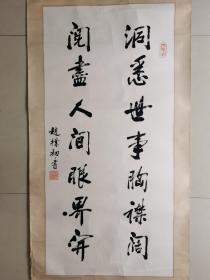 洞悉世事胸襟阔
阅尽人间眼界开
赵樸初书